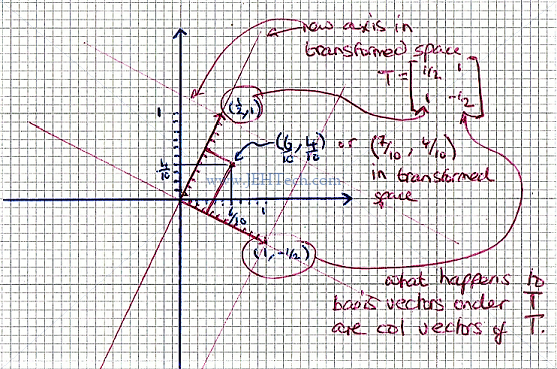 new axis in
transformed space
T = [1/2 1
1 -1/2]
(1/2, 1)
1
(6/10, 4/10) or (7/10, 4/10)
in transformed
space
4/10
www.JEHTech.com
6/10
1
(1, -1/2)
what happens to
basis vectors under T
are col vectors of T.